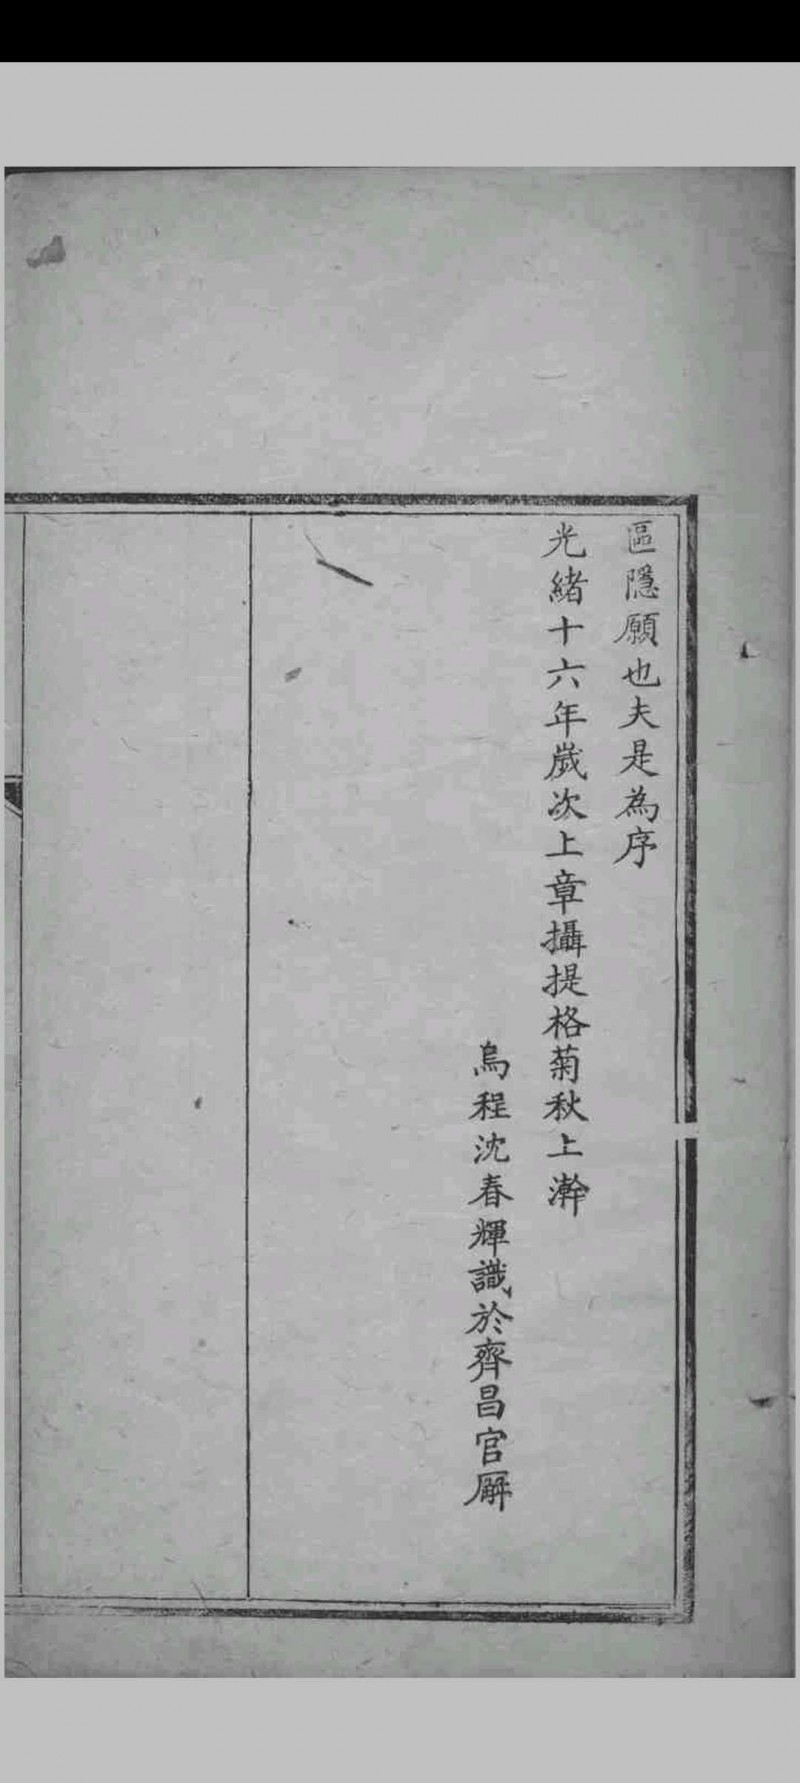 區隱願也夫是為序
光緒十六年歲次上章攝提格菊秋上澣
烏程沈春輝識於齊昌官廨